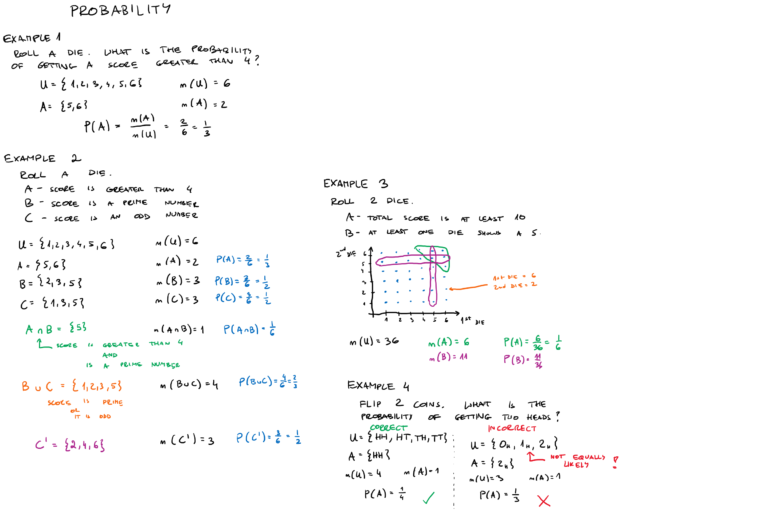 PROBABILITY
EXAMPLE 1
ROLL A DIE. WHAT IS THE PROBABILITY
OF GETTING A SCORE GREATER THAN 4?
U = {1,2,3,4,5,6} n(U) = 6
A = {5,6} n(A) = 2
P(A) = n(A)/n(U) = 2/6 = 1/3
EXAMPLE 2
ROLL A DIE.
A - SCORE IS GREATER THAN 4
B - SCORE IS A PRIME NUMBER
C - SCORE IS AN ODD NUMBER
U = {1,2,3,4,5,6} n(U) = 6
A = {5,6} n(A) = 2 P(A) = 2/6 = 1/3
B = {2,3,5} n(B) = 3 P(B) = 3/6 = 1/2
C = {1,3,5} n(C) = 3 P(C) = 3/6 = 1/2
A ∩ B = {5} n(A∩B) = 1 P(A∩B) = 1/6
SCORE IS GREATER THAN 4
AND
IS A PRIME NUMBER
B ∪ C = {1,2,3,5} n(B∪C) = 4 P(B∪C) = 4/6 = 2/3
SCORE IS PRIME
OR
IT IS ODD
C' = {2,4,6} n(C') = 3 P(C') = 3/6 = 1/2
EXAMPLE 3
ROLL 2 DICE.
A - TOTAL SCORE IS AT LEAST 10
B - AT LEAST ONE DIE SHOWS A 5.
2nd DIE
6
5
4
3
2
1
1 2 3 4 5 6 1st DIE
1st DIE = 6
2nd DIE = 2
n(U) = 36 n(A) = 6 P(A) = 6/36 = 1/6
n(B) = 11 P(B) = 11/36
EXAMPLE 4
FLIP 2 COINS. WHAT IS THE
PROBABILITY OF GETTING TWO HEADS?
CORRECT
U = {HH, HT, TH, TT}
A = {HH}
n(U) = 4 n(A) = 1
P(A) = 1/4
INCORRECT
U = {0H, 1H, 2H}
NOT EQUALLY
LIKELY !
A = {2H}
n(U) = 3 n(A) = 1
P(A) = 1/3